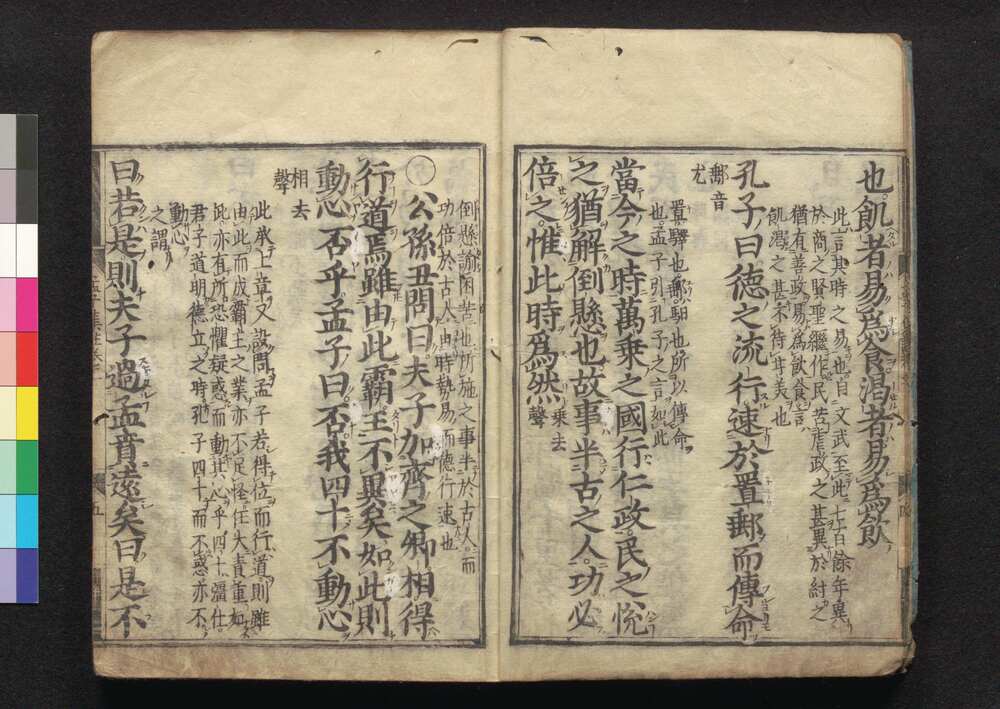 也飢者易爲食渴者易爲飮
此言其時之易也自文武至此七百餘年異
於商之賢聖繼作民苦虐政之甚異於紂之
猶有善政易爲飮食言
飢渴之甚不待甘美也
孔子曰德之流行速於置郵而傳命
郵音
尤
置驛也郵馹也所以傳命
也孟子引孔子之言如此
當今之時萬乘之國行仁政民之悅
之猶解倒懸也故事半古之人功必
倍之惟此時爲然
乘去
聲
倒懸諭困苦也所施之事半於古人而
功倍於古人由時勢易而德行速也
公孫丑問曰夫子加齊之卿相得
行道焉雖由此霸王不異矣如此則
動心否乎孟子曰否我四十不動心
相去
聲
此承上章又設問孟子若得位而行道則雖
由此而成霸王之業亦不足怪任大責重如
此亦有所恐懼疑惑而動其心乎四十強仕
君子道明德立之時孔子四十而不惑亦不
動心
之謂
曰若是則夫子過孟賁遠矣曰是不